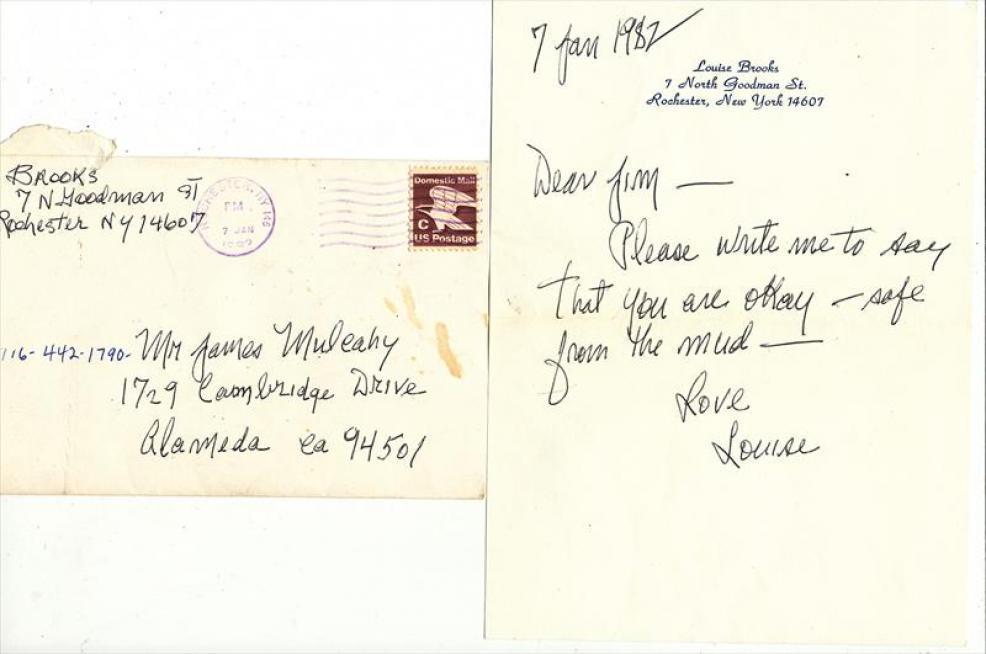 BROOKS
7 N Goodman ST
Rochester NY 14607
ROCHESTER, NY 146
PM
7 JAN
1982
Domestic Mail
C
US Postage
716-442-1790-
Mr James Mulcahy
1729 Cambridge Drive
Alameda Ca 94501
7 Jan 1982
Louise Brooks
7 North Goodman St.
Rochester, New York 14607
Dear Jim —
Please write me to say
that you are okay – safe
from the mud —
Love
Louise